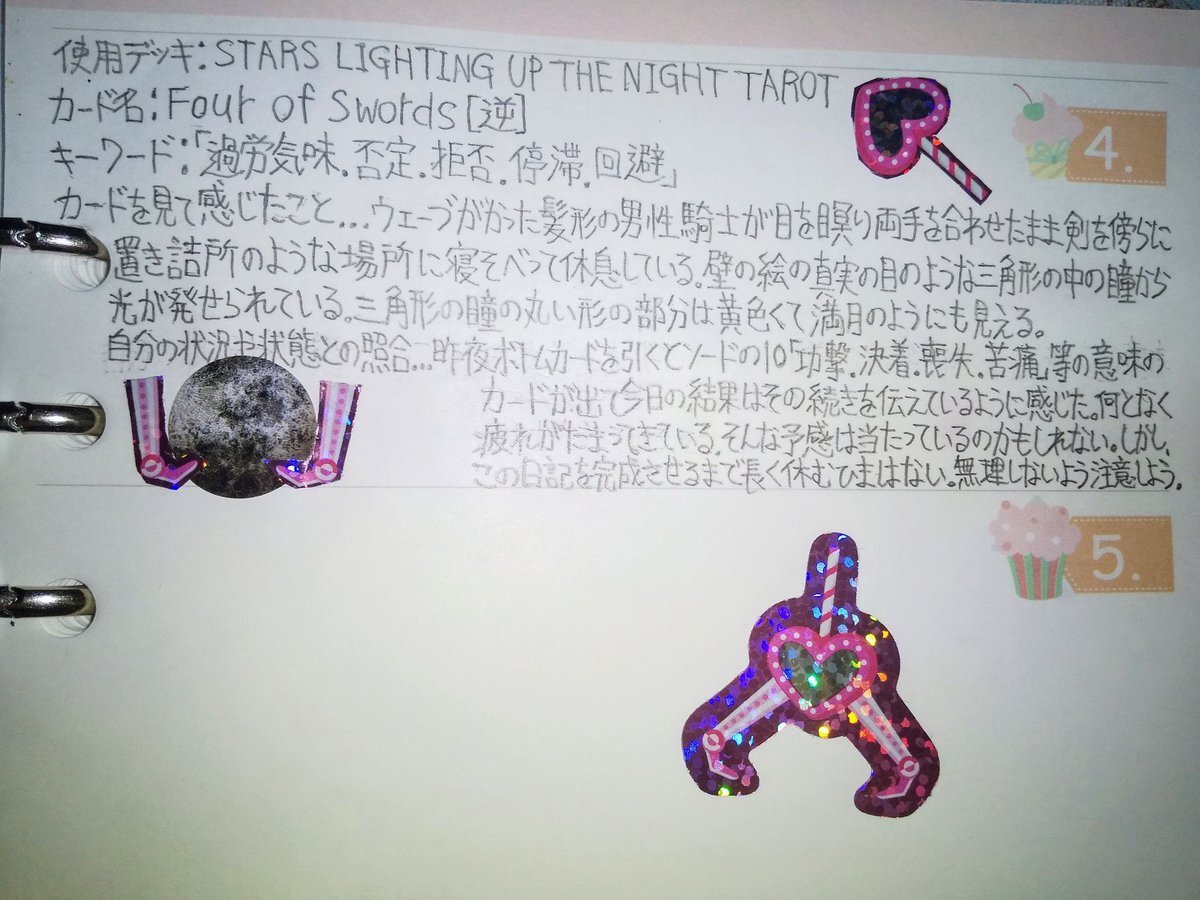 使用デッキ:STARS LIGHTING UP THE NIGHT TAROT
カード名:Four of Swords[逆]
キーワード:「過労気味.否定.拒否.停滞.回避」
4.
カードを見て感じたこと...ウェーブがかった髪形の男性騎士が目を瞑り両手を合わせたまま剣を傍らに
置き詰所のような場所に寝そべって休息している。壁の絵の真実の目のような三角形の中の瞳から
光が発せられている。三角形の瞳の丸い形の部分は黄色くて満月のようにも見える。
自分の状況や状態との照合...昨夜ボトムカードを引くとソードの10「功撃.決着.喪失.苦痛」等の意味の
カードが出て今日の結果はその続きを伝えているように感じた。何となく
疲れがたまってきている。そんな予感は当たっているのかもしれない。しかし、
この日記を完成させるまで長く休むひまはない。無理しないよう注意しよう。
5.